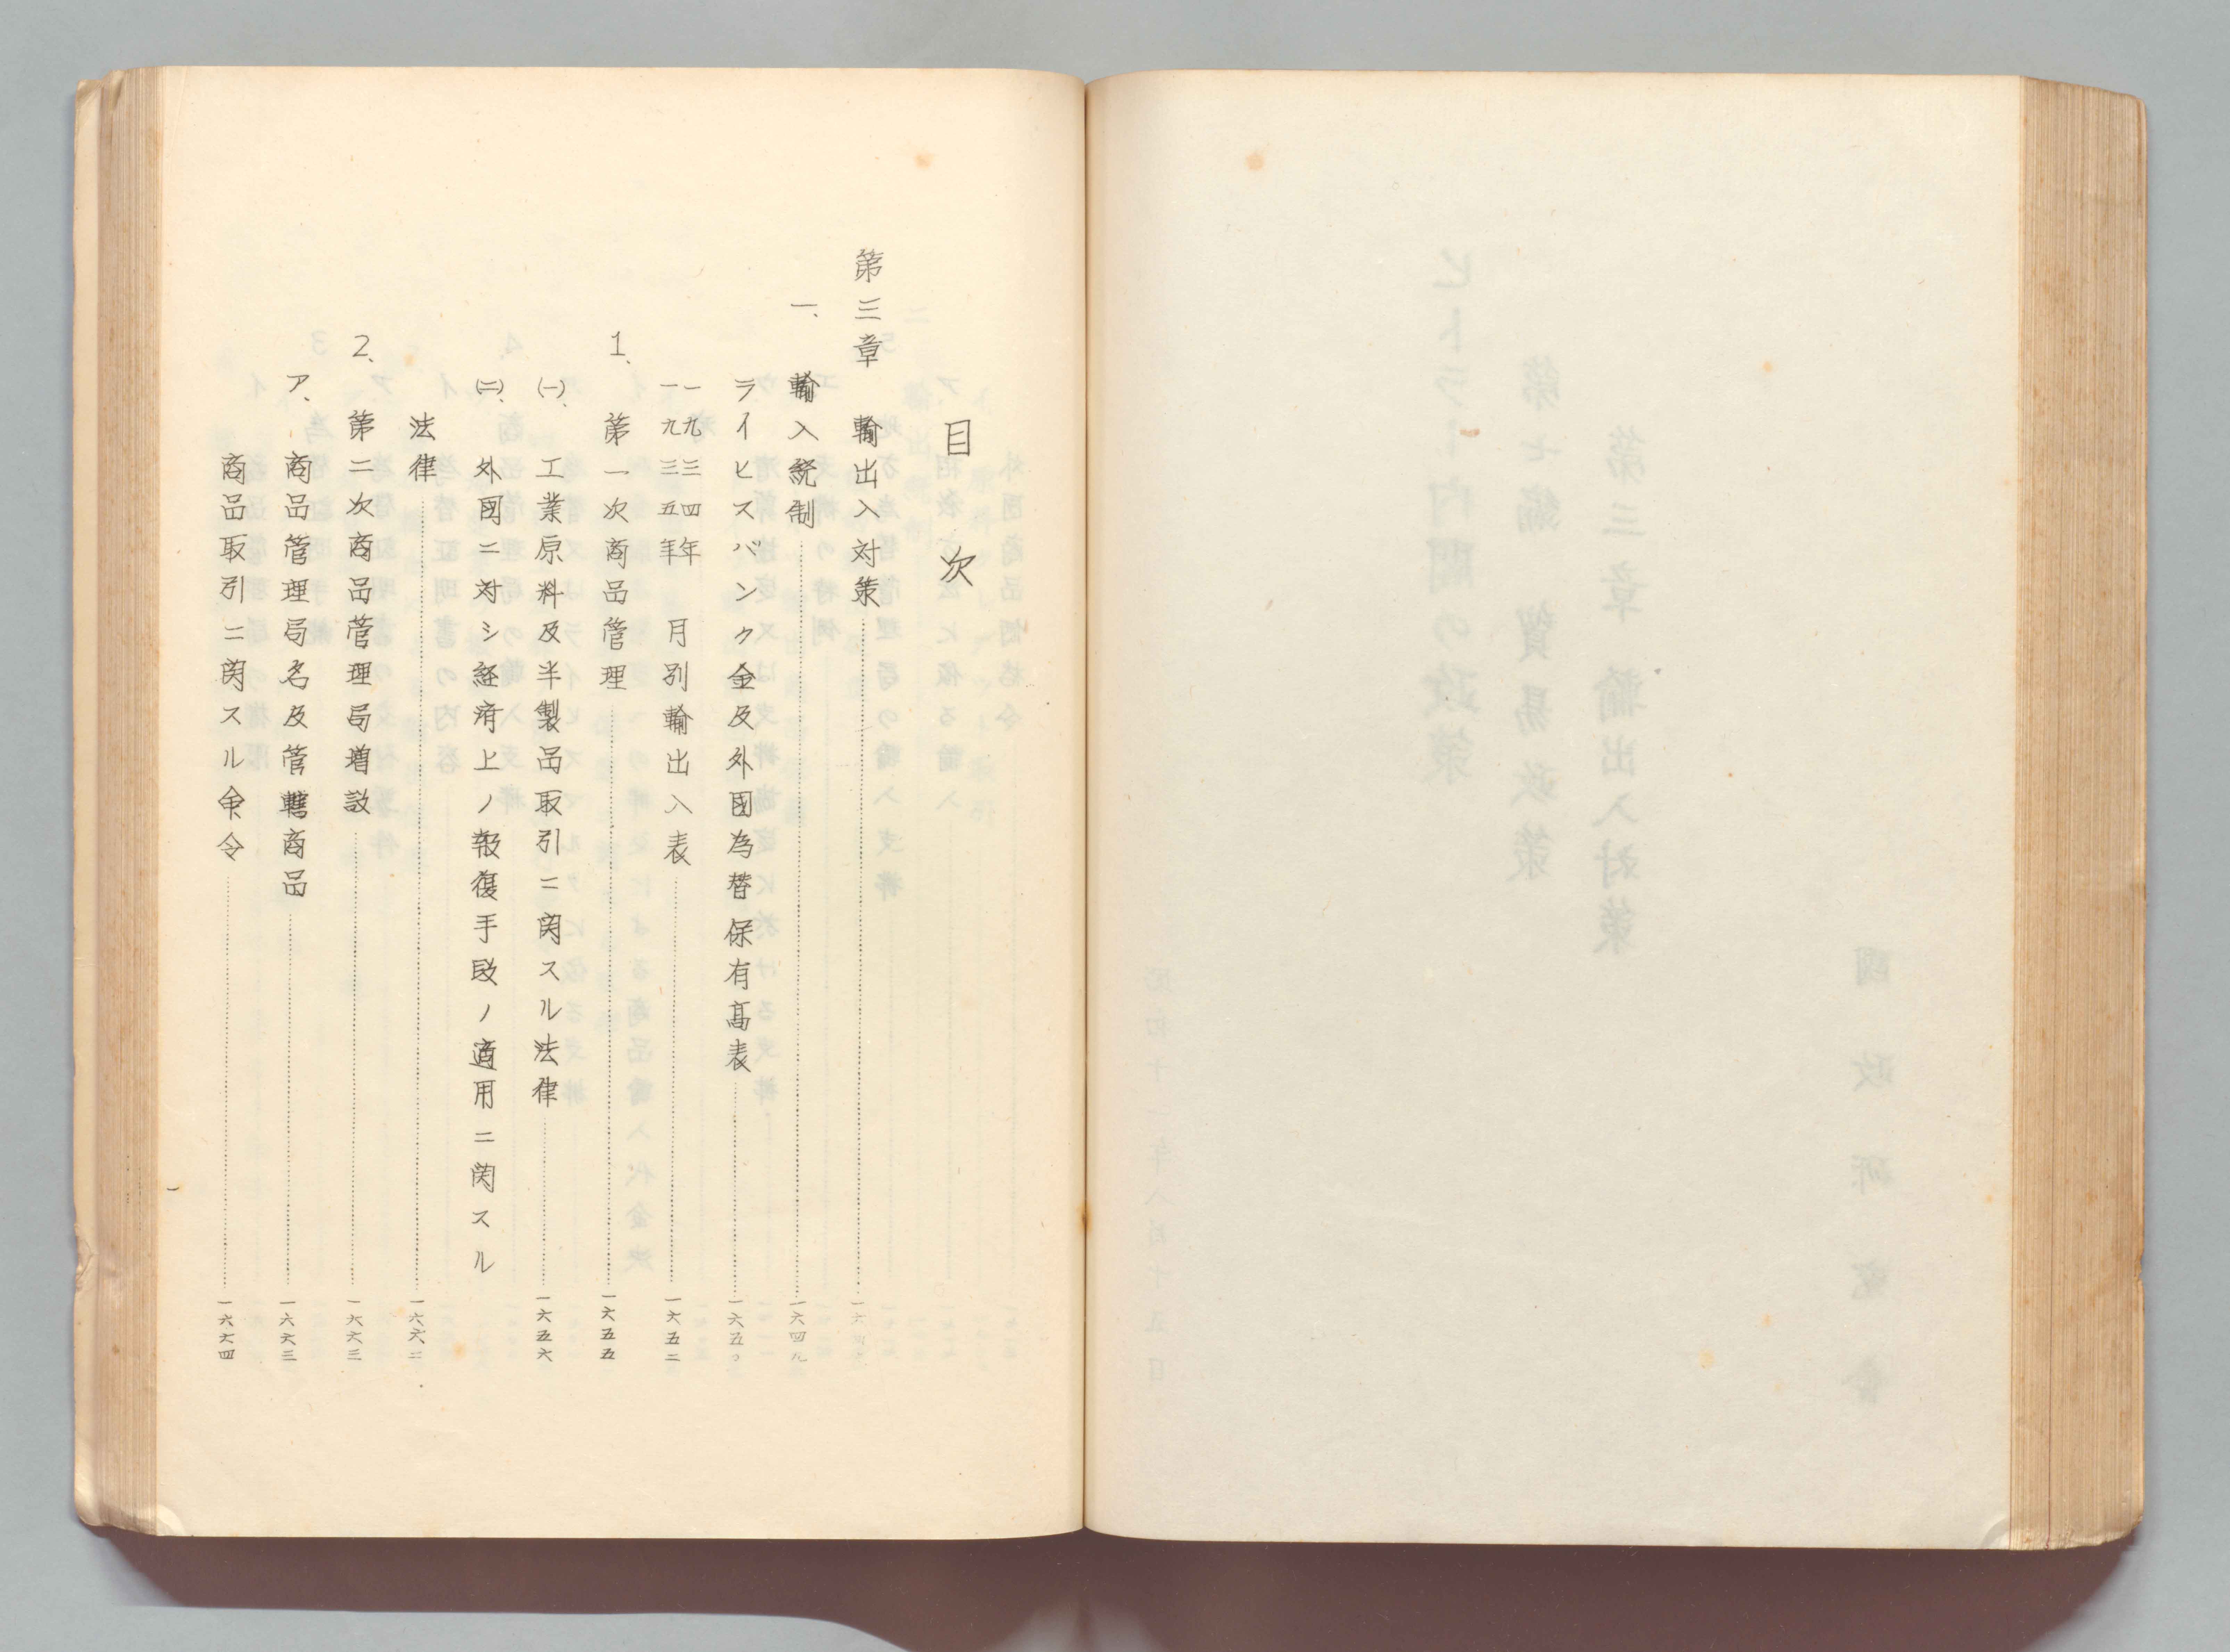 目次
第三章 輸出入対策
一、輸入統制……一六四九
ライヒスバンク金及外國為替保有高表……一六五〇
一九三四年
一九三五年 月別輸出入表……一六五二
1、第一次商品管理……一六五五
(一)、工業原料及半製品取引ニ関スル法律……一六五六
(二)、外國ニ対シ経済上ノ報復手段ノ適用ニ関スル
法律……一六六二
2、第二次商品管理局増設……一六六三
ア、商品管理局名及管轄商品……一六六三
商品取引ニ関スル命令……一六六四